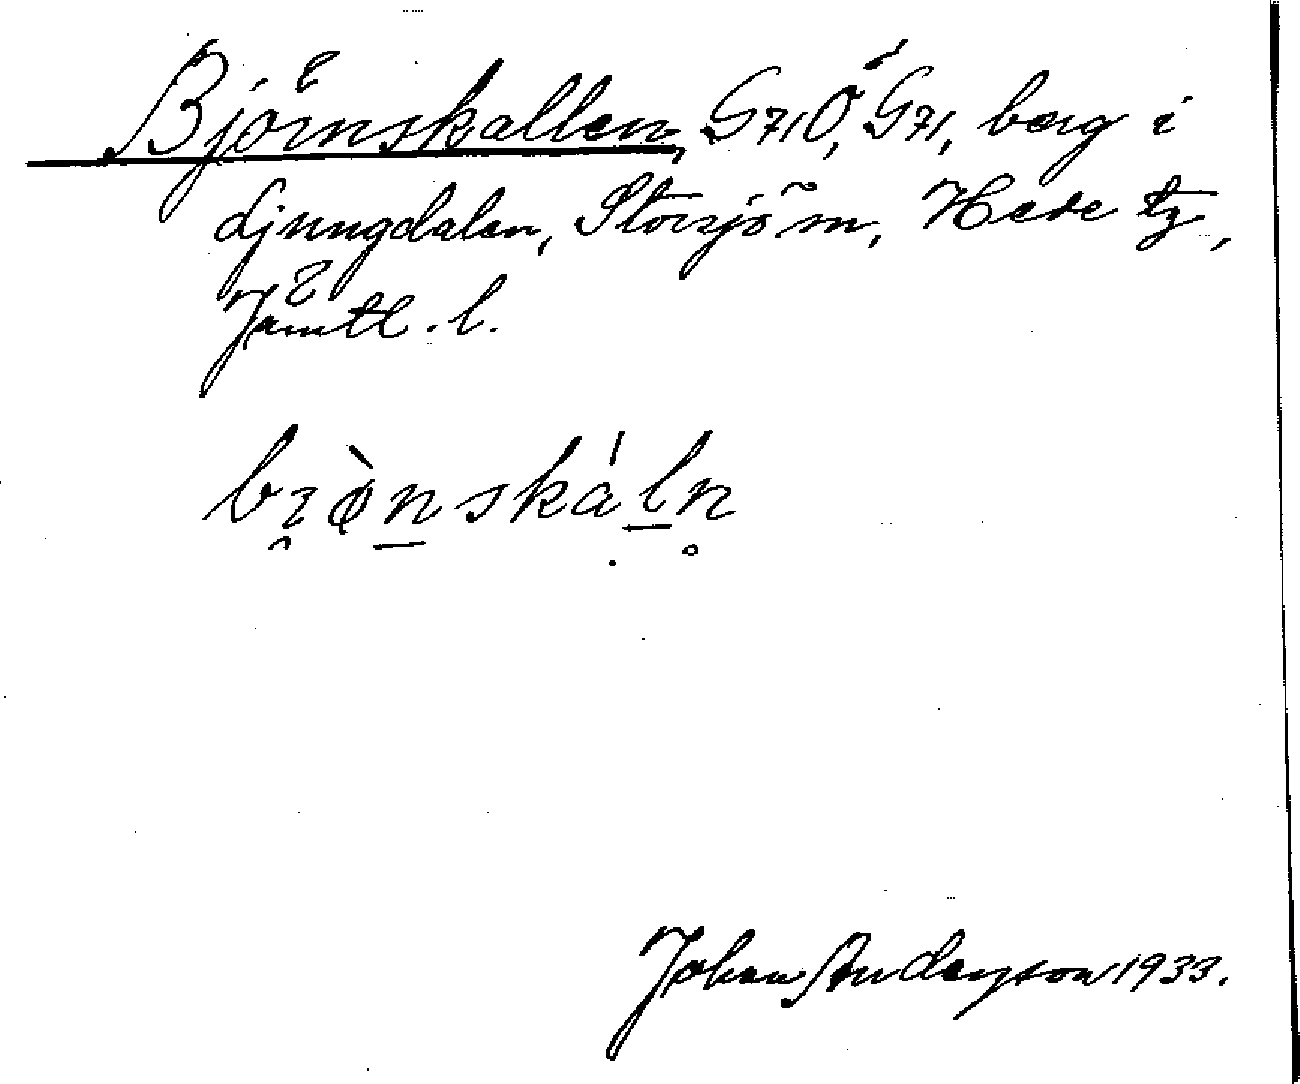 Björnskallen, G71Ö, G71, berg i
Ljungdalen, Storsjö sn, Hede tg,
Jämtl. l.
Johan Anderson 1933.